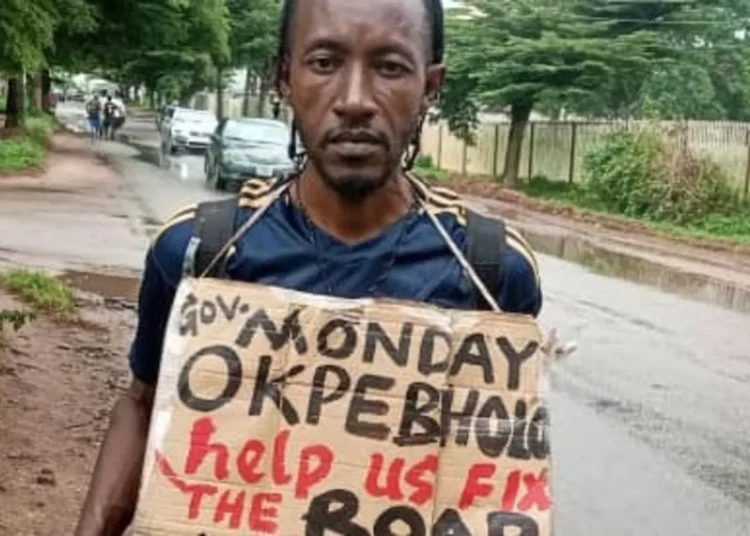 GOV. MONDAY
OKPEBHOLO
help us FIX
THE ROAD